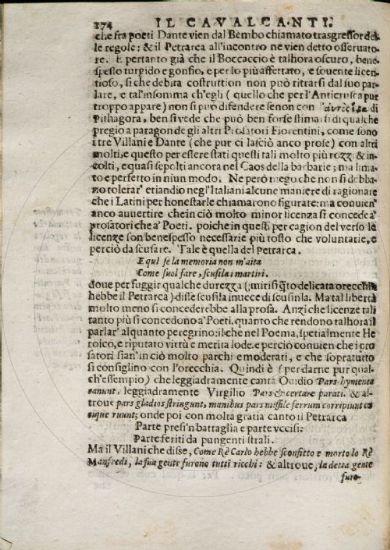 274 IL CAVALCANTI.
che fra poeti Dante vien dal Bembo chiamato trasgressor del-
le regole: & il Petrarca all'incontro ne vien detto osseruato-
re. E pertanto già che il Boccaccio è talhora oscuro, bene
spesso turpido e gonfio, e per lo più affettato, e souente licen-
tioso, si che debita costruttion non può ritrarsi dal suo par-
lare, e tal'insomma ch'egli (quello che per l'Anticrusca pur
troppo appare) non si può difendere senon con di
Pithagora, ben si vede che può ben forse stimarsi di qualche
pregio a paragon de gli altri Prosatori Fiorentini, come sono
i tre Villani e Dante (che pur ci lasciò anco prose) con altri
molti, e questo per essere stati questi tali molto più rozzi & in-
colti, e quasi sepolti ancor nel Caos della barbarie; ma lima-
to e perfetto in niun modo. Ne però niego che non si debba-
no tolerar' etiandio negl'Italiani alcune maniere di ragionare
che i Latini per honestarle chiamarono figurate: ma conuien'
anco auuertire che in ciò molto minor licenza si concede a'
prosatori che a' Poeti. poiche in questi per cagion del verso le
licenze son benespesso necessarie più tosto che voluntarie, e
perciò da scusare. Tale è quella del Petrarca.
E qui se la memoria non m'aita
Come suol fare, scusila i martiri.
doue per fuggir qualche durezza (mirisi quāto delicate orecchie
hebbe il Petrarca) disse scusila inuece di scusinla. Ma tal libertà
molto meno si concederebbe alla prosa. Anzi che licenze tali
tanto più si concedono a' Poeti, quarto che rendono talhora il
parlar' alquanto peregrino: ilche nel Poema, spetialmente He
roico, e riputato virtù e merita lode. e perciò conuien che i pro
satori sian'in ciò molto parchi e moderati, e che sopratutto
si consiglino con l'orecchia. Quindi è (per darne pur qual-
ch'essempio) che leggiadramente cantò Ouidio Pars hymenæa
canunt, leggiadramente Virgilio Pars certare parati. & al-
troue pars gladios stringunt, manibus pars missile ferrum corripiunt ca
stique ruunt; onde poi con molta gratia cantò il Petrarca
Parte presi'n battaglia e parte vccisi:
Parte feriti da pungenti strali.
Ma il Villani che disse, Come Rè Carlo hebbe sconfitto e morto lo Rè
Manfredi, la sua gente furono tutti ricchi: & altroue, la detta gente
furo-